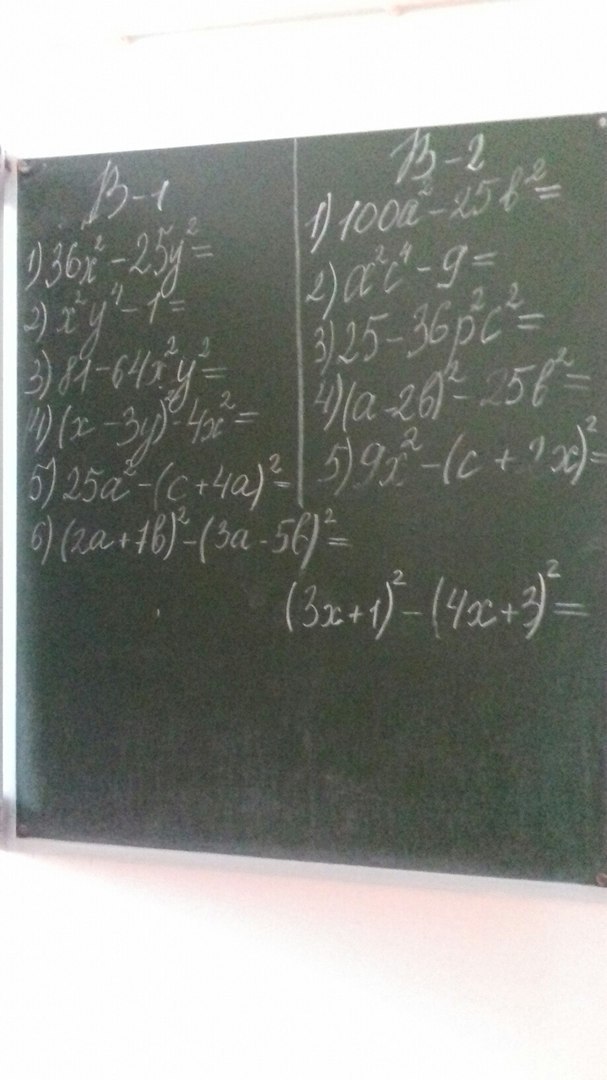 В-1
1) 36x² - 25y² =
2) x²y⁴ - 1 =
3) 81 - 64x²y² =
4) (x - 3y)² - 4x² =
5) 25a² - (c + 4a)² =
6) (2a + 7b)² - (3a - 5b)² =
В-2
1) 100a² - 25b² =
2) a²c⁴ - 9 =
3) 25 - 36p²c² =
4) (a - 2b)² - 25b² =
5) 9x² - (c + 2x)² =
(3x + 1)² - (4x + 3)² =